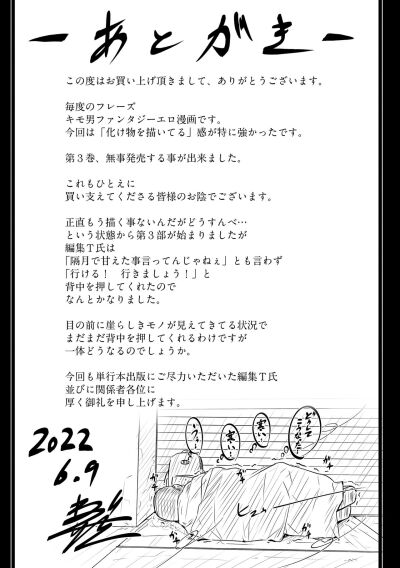 ーあとがきー
この度はお買い上げ頂きまして、ありがとうございます。
毎度のフレーズ
キモ男ファンタジーエロ漫画です。
今回は「化け物を描いてる」感が特に強かったです。
第３巻、無事発売する事が出来ました。
これもひとえに
買い支えてくださる皆様のお陰でございます。
正直もう描く事ないんだがどうすんべ…
という状態から第３部が始まりましたが
編集Ｔ氏は
「隔月で甘えた事言ってんじゃねぇ」とも言わず
「行ける！　行きましょう！」と
背中を押してくれたので
なんとかなりました。
目の前に崖らしきモノが見えてきてる状況で
まだまだ背中を押してくれるわけですが
一体どうなるのでしょうか。
今回も単行本出版にご尽力いただいた編集Ｔ氏
並びに関係者各位に
厚く御礼を申し上げます。
どうして
こうなった…
寒い…
寒い…
ガチ
ガチ
ガチ
ヒュゥ
2022
6.9